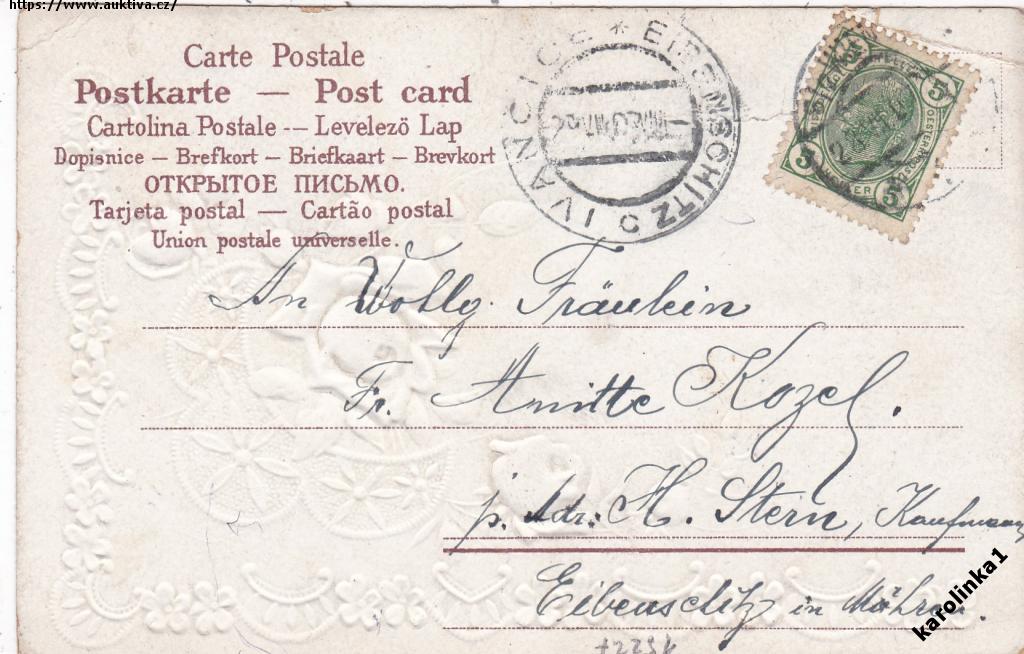 https://www.auktiva.cz/
Carte Postale
Postkarte — Post card
Cartolina Postale -- Levelező Lap
Dopisnice — Brefkort — Briefkaart — Brevkort
ОТКРЫТОЕ ПИСЬМО.
Tarjeta postal — Cartão postal
Union postale universelle.
EIBENSCHITZ IVANČICE *
5 5
3 5
An Wollg. Fräulein
Fr. Anitte Kozel.
p. Adr: H. Stern, Kaufmann
Eibenschitz in Mähren.
karolinka1